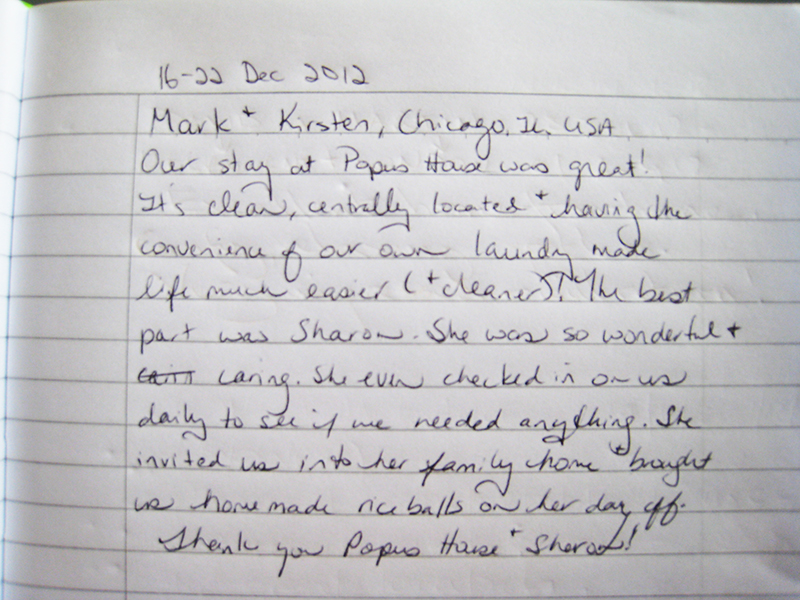 16-22 Dec 2012
Mark + Kirsten, Chicago, IL, USA
Our stay at Papus House was great!
It's clean, centrally located + having the
convenience of our own laundry made
life much easier (+ cleaner)! The best
part was Sharon. She was so wonderful +
caring. She even checked in on us
daily to see if we needed anything. She
invited us into her family home + brought
us homemade rice balls on her day off.
Thank you Papus House + Sharon!